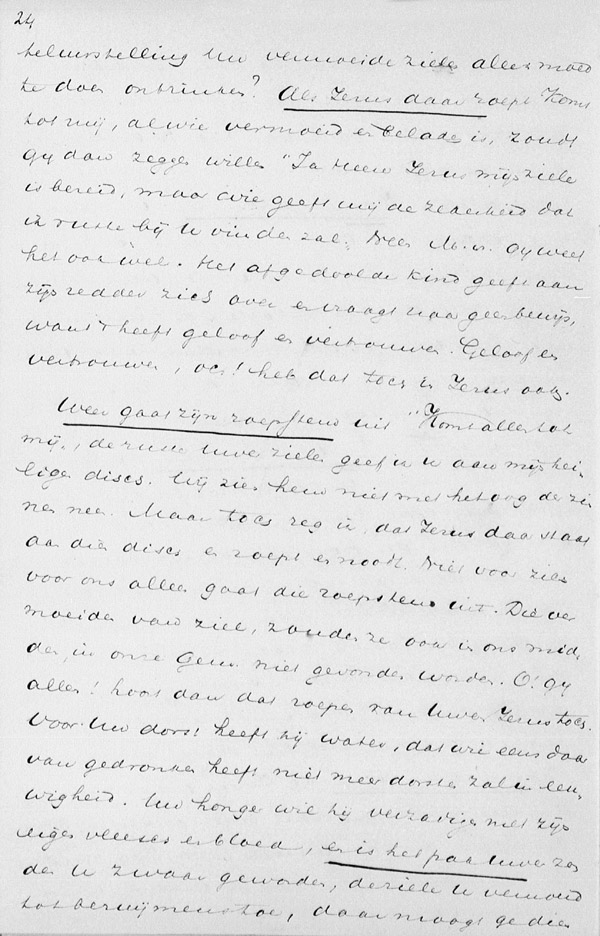 24
teleurstelling Uw vermoeide zielen allen moed
te doen ontzinken? Als Jezus daar roept "Komt
tot mij, al wie vermoeid en belade is, zoudt
gy dan zeggen willen "Ja Heere Jezus mijn ziele
is bereid, maar wie geeft mij de zekerheid dat
ik ruste bij U vinden zal. Neen M. v. gy weet
het ook wel. Het afgedoolde kind geeft aan
zijn redder zich over en vraagt naar geen bewijs,
want 't heeft geloof en vertrouwen. Geloof en
vertrouwen, och! heb dat toch in Jezus ook.
Weer gaat zijn roepstem uit "Komt allen tot
mij, de ruste Uwer zielen geef ik U aan mijn hei,
ligen disch. Wij zien hem niet met het oog der zin
nen neer. Maar toch zeg ik, dat Jezus daar staat
aan dien disch en roept en noodt. Niet voor zich
voor ons allen gaat die roepstem uit. Die ver
moeiden van ziel, zouden ze ook in ons mid,
den, in onze Gem. niet gevonden worden. O! gy
allen! hoort dan dat roepen van Uwen Jezus toch.
Voor Uw dorst heeft hij water, dat wie eens daar
van gedronken heeft niet meer dorsten zal in eeu,
wigheid. Uw honger wil hij verzadigen met zijn
eigen vleesch en bloed, en is het pak Uwer zon
den U zwaar geworden, de ziele U vermoeid
tot bezwijmens toe, daar moogt ge dien